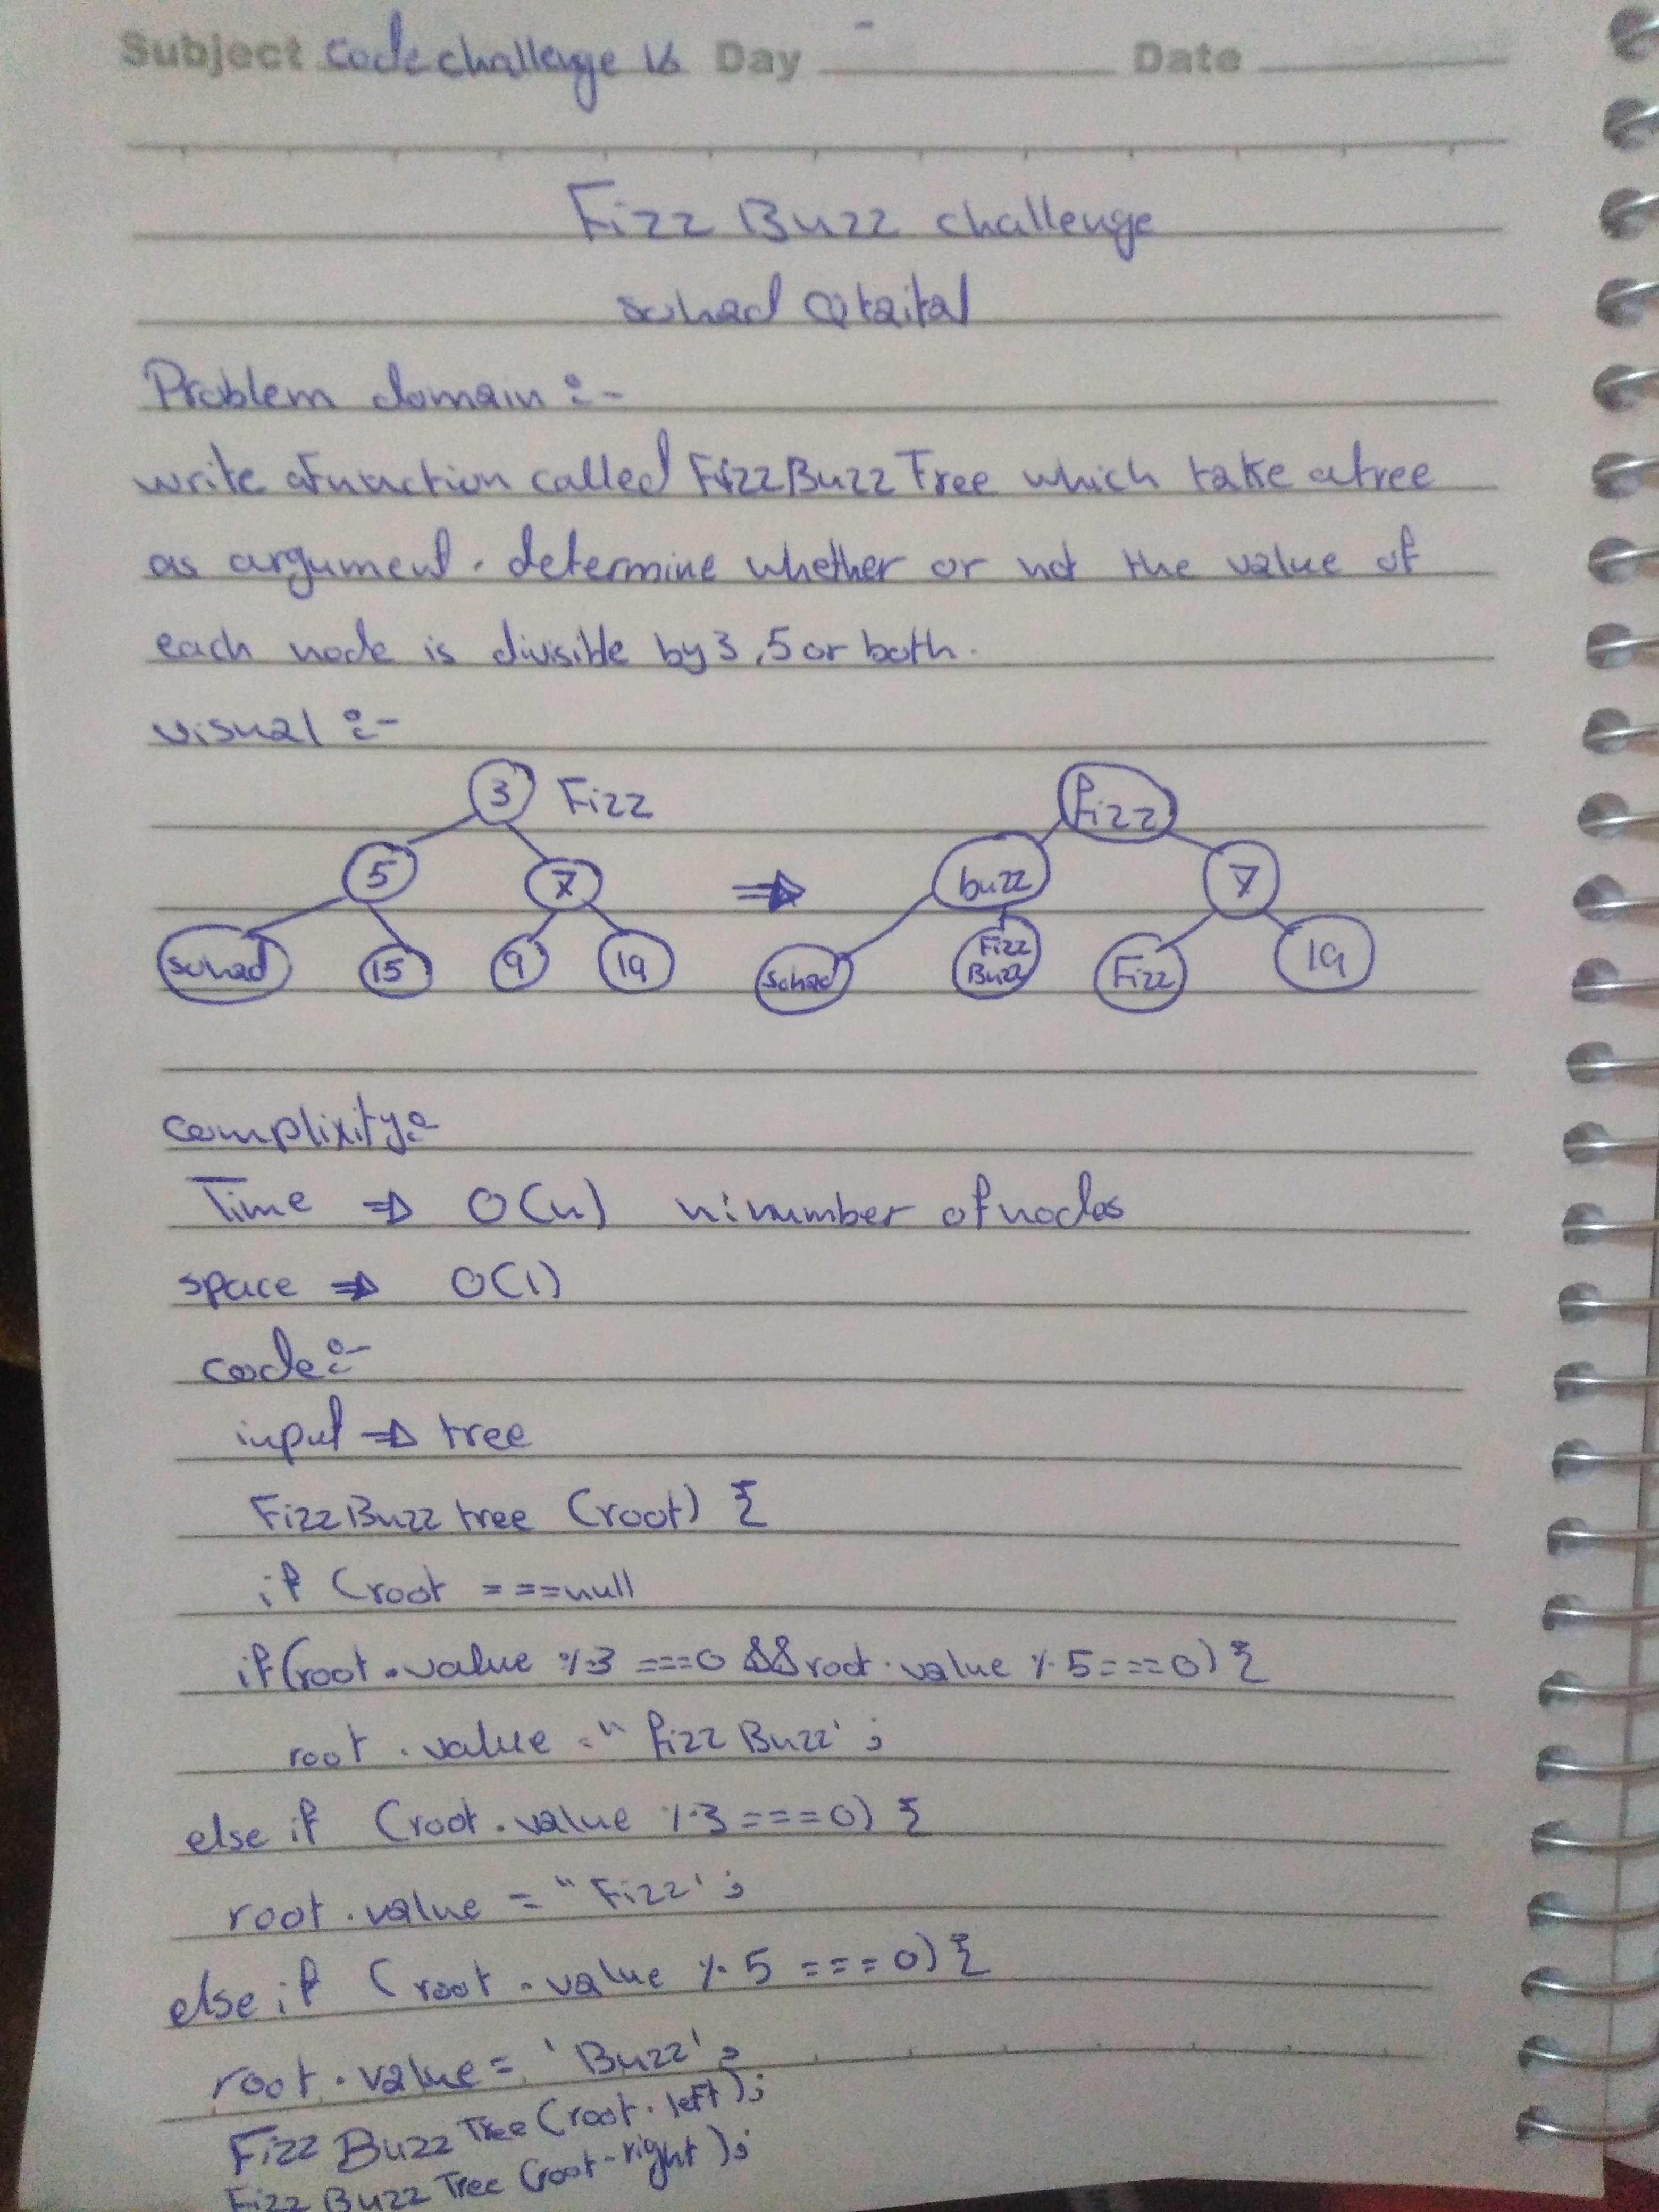 Subject Code challenge 16 Day Date
Fizz Buzz challenge
suhad Qtaital
Problem domain :-
write a function called FizzBuzz Tree which take a tree
as argument. determine whether or not the value of
each node is divisible by 3, 5 or both.
visual :-
3 Fizz
5 7
suhad 15 9 19
⇒
Fizz
buzz 7
suhad Fizz Buzz Fizz 19
complixity:-
Time ⇒ O(n) n: number of nodes
space ⇒ O(1)
code:-
input ⇒ tree
FizzBuzz tree (root) {
if (root ===null
if(root.value %3 ===0 &&root.value %5===0) {
root.value = "fizz Buzz';
else if (root.value %3===0) {
root.value = "Fizz';
else if (root.value %5 ===0) {
root.value = 'Buzz';
Fizz Buzz Tree (root.left);
Fizz Buzz Tree (root.right);